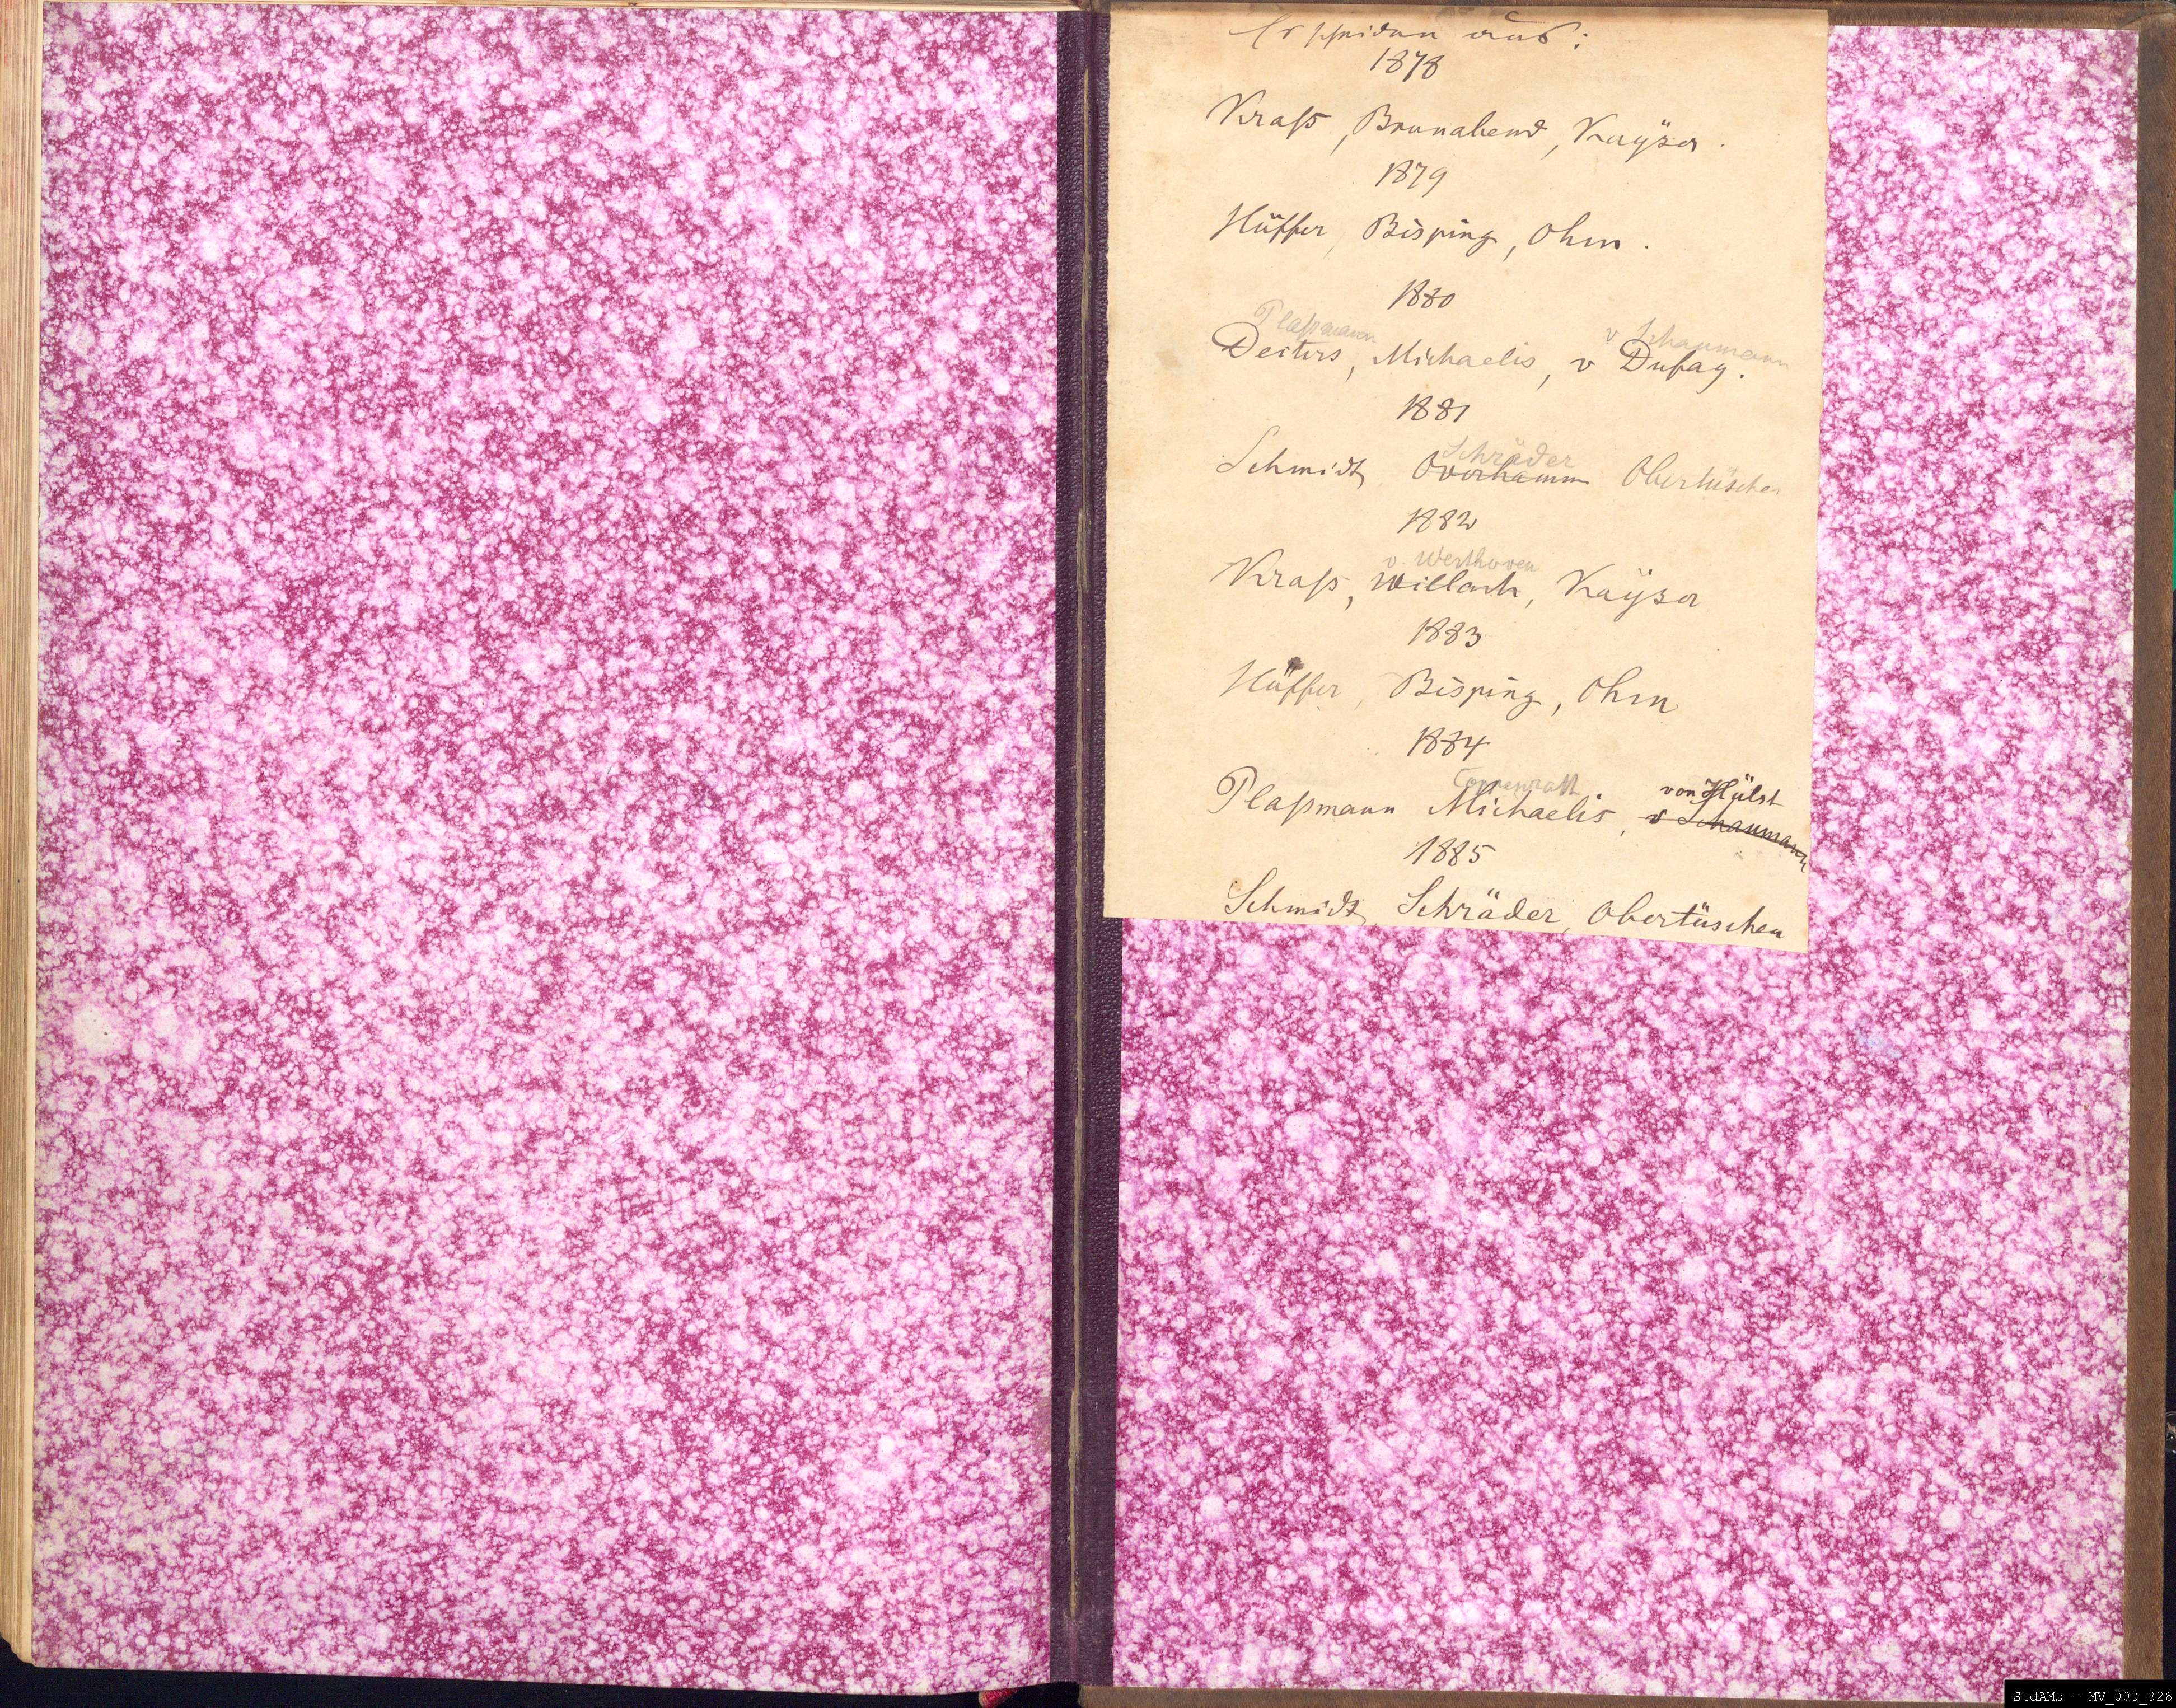 Es scheiden aus:
1878
Kraß, Brunabend, Kayser.
1879
Hüffer, Bisping, Ohm.
1880
Plaßmann v Schaumann
Deiters, Michaelis, v Dufay.
1881
Schräder
Schmidt, Overhamm Obertüschen
1882
v. Werthoven
Kraß, Willach, Kayser
1883
Hüffer, Bisping, Ohm
1884
Toppenratt von Hülst
Plaßmann Michaelis, v Schaumann
1885
Schmidt, Schräder, Obertüschen
StdAMs - MV_003_326